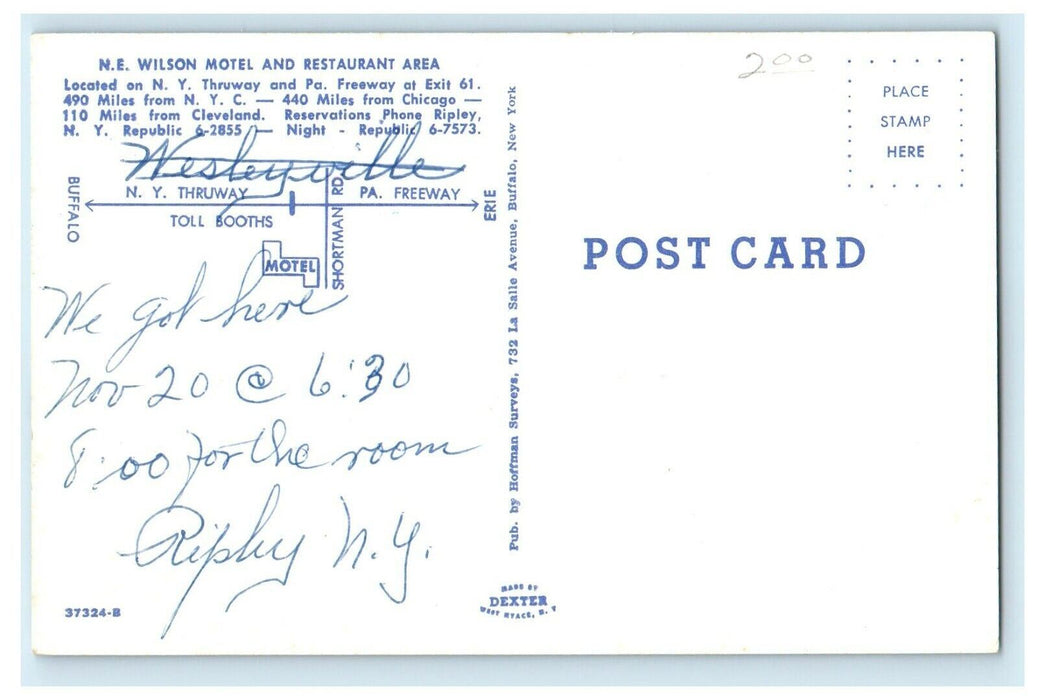 N.E. WILSON MOTEL AND RESTAURANT AREA
Located on N. Y. Thruway and Pa. Freeway at Exit 61.
490 Miles from N. Y. C. — 440 Miles from Chicago —
110 Miles from Cleveland. Reservations Phone Ripley,
N. Y. Republic 6-2855 — Night - Republic 6-7573.
Wesleyville
BUFFALO
N. Y. THRUWAY
PA. FREEWAY
ERIE
TOLL BOOTHS
SHORTMAN RD.
MOTEL
We got here
Nov 20 @ 6:30
8:00 for the room
Ripley N.Y.
37324-B
Pub. by Hoffman Surveys, 732 La Salle Avenue, Buffalo, New York
MADE BY
DEXTER
WEST NYACK, N. Y.
2.00
PLACE
STAMP
HERE
POST CARD